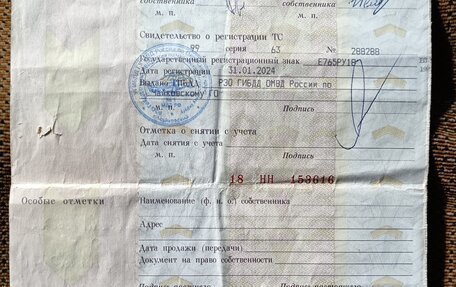 собственника собственника
Свидетельство о регистрации ТС
99 серия 63 № 288288
Государственный регистрационный знак Е765РУ18
Дата регистрации 31.01.2024
Выдано ГИБДД РЭО ГИБДД ОМВД России по
Чайковскому ГО
М. П.
Подпись
Отметка о снятии с учета
Дата снятия с учета
М. П. Подпись
18 НН 153616
Особые отметки
Наименование (ф. и. о.) собственника
Адрес
Дата продажи (передачи)
Документ на право собственности
Подпись прежнего Подпись настоящего